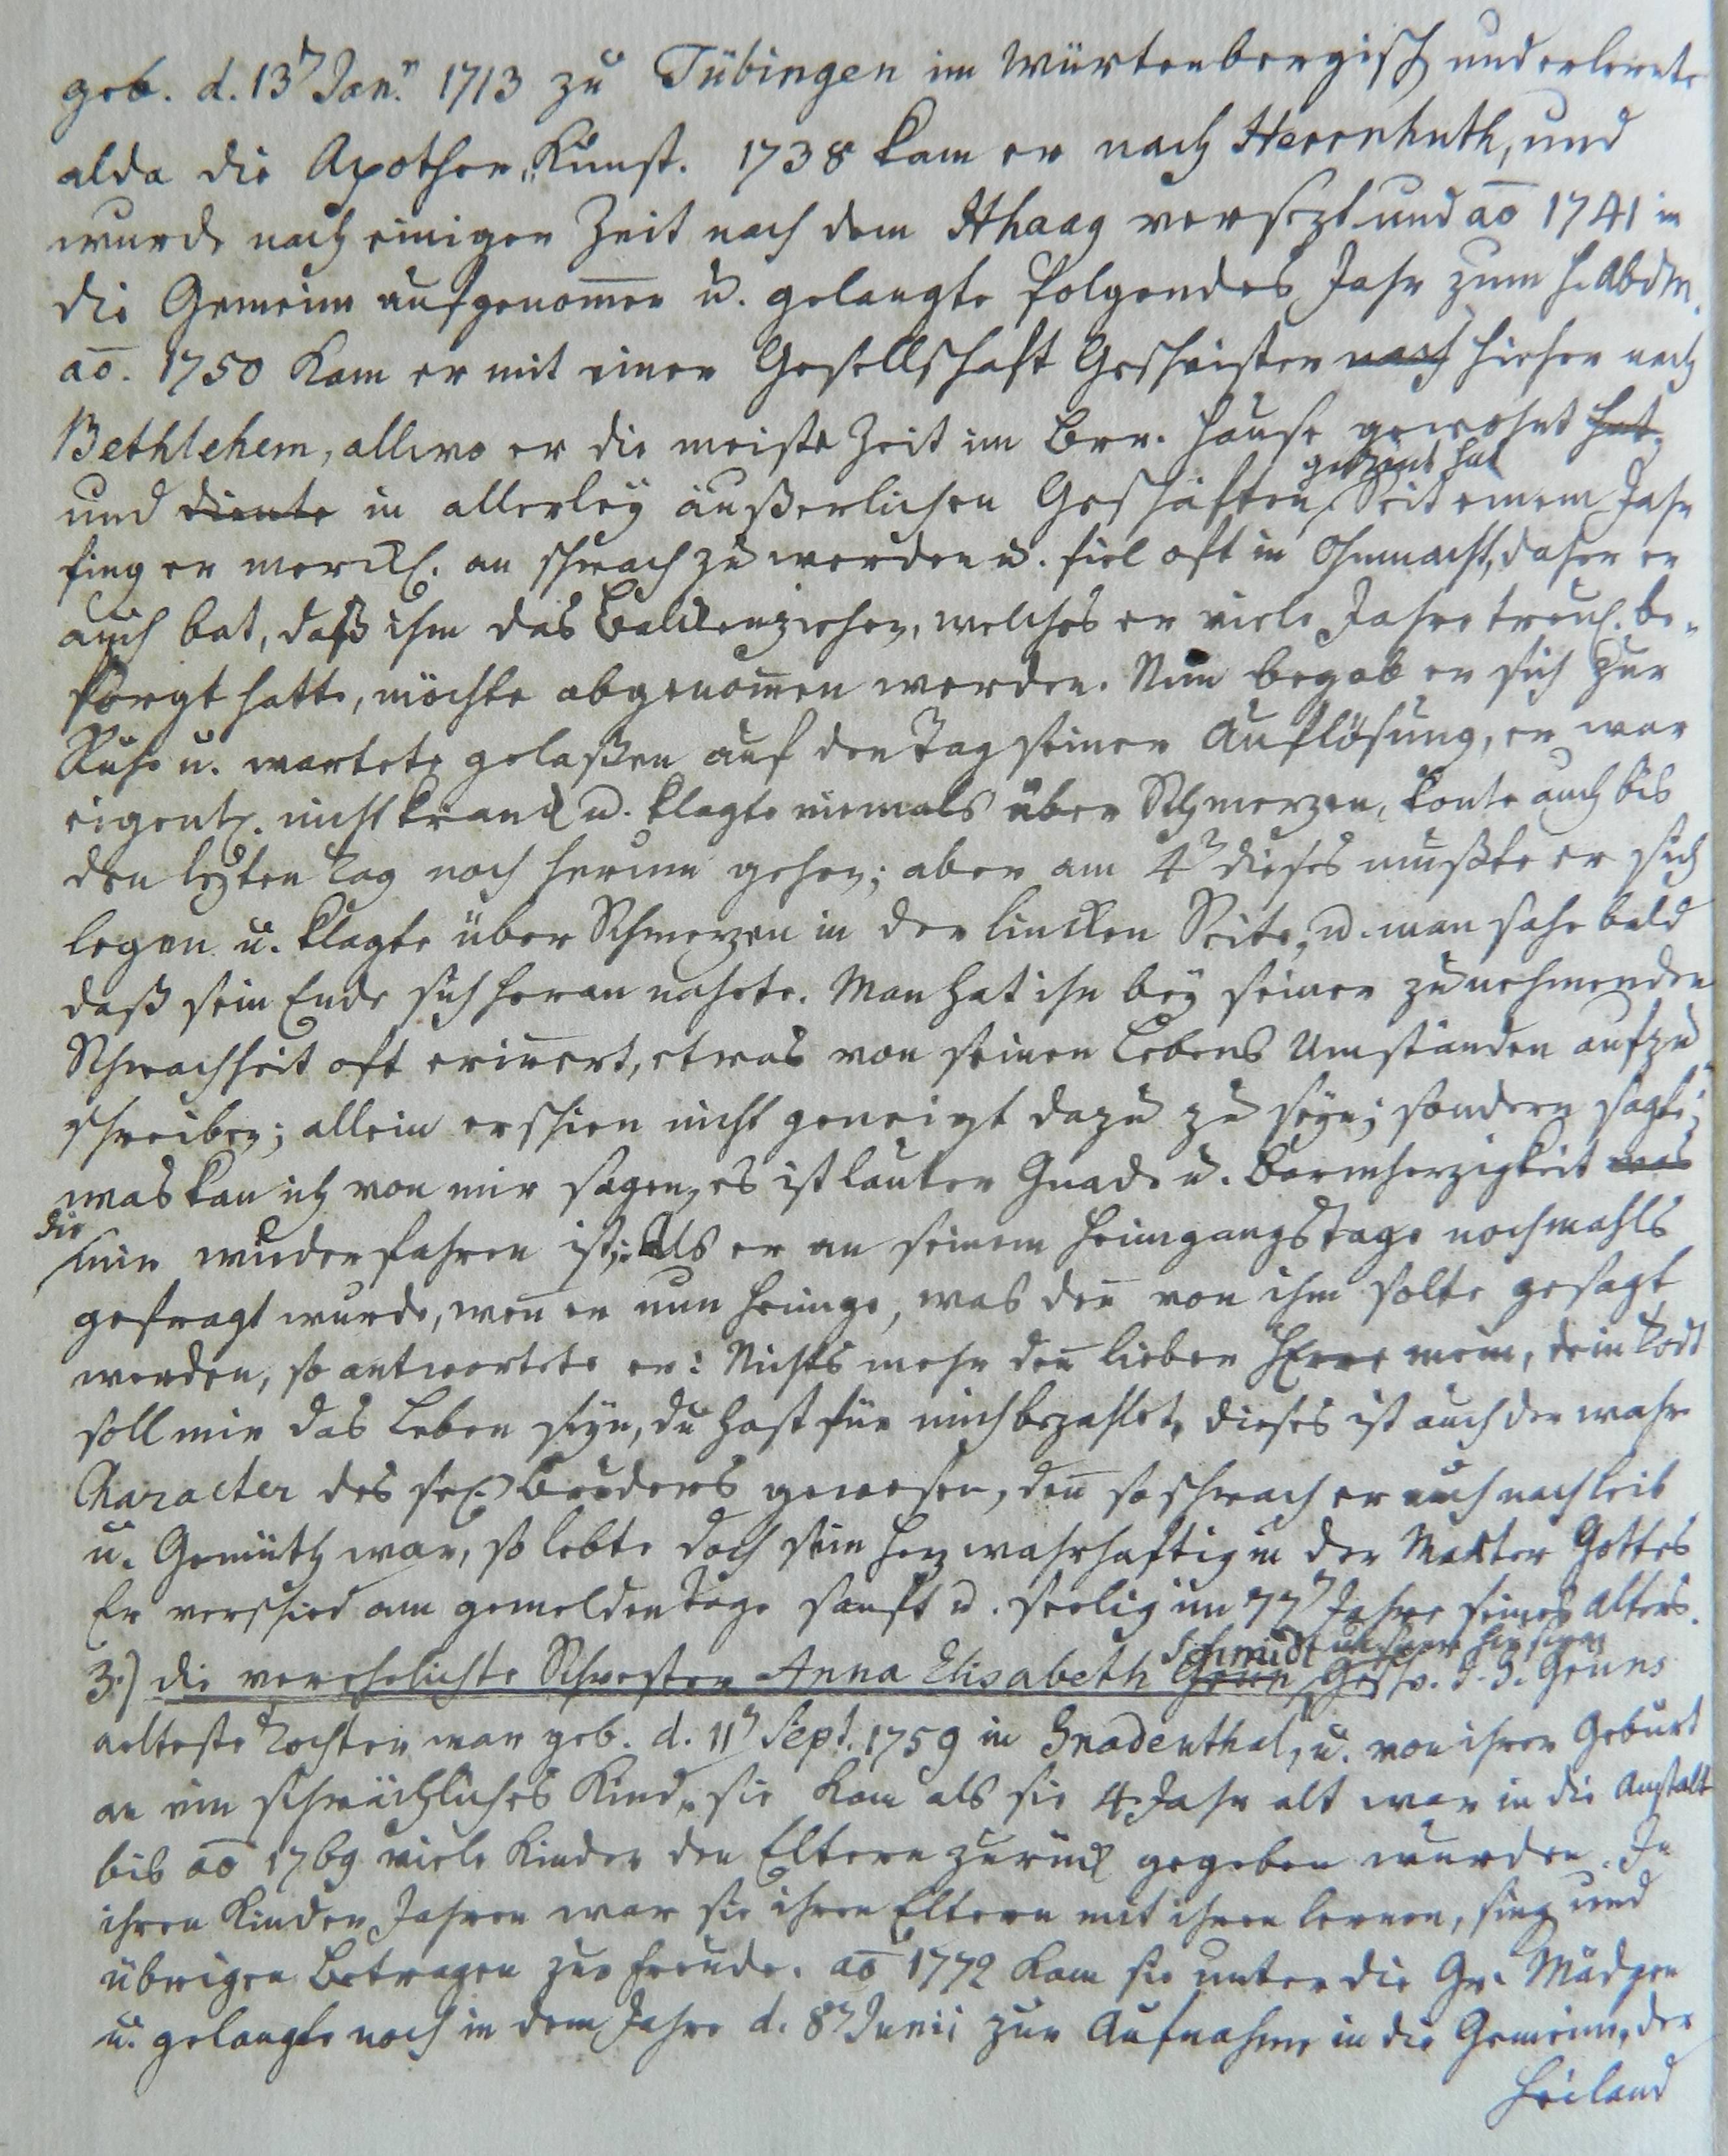 geb. d. 13n Jan. 1713 zu Tübingen im Würtenbergisch und erlernte
alda die Apotheker Kunst. 1738 kam er nach Herrnhuth, und
wurde nach einiger Zeit nach dem Hhaag versezt und ao 1741 in
die Gemeine aufgenomen u. gelangte folgendes Jahr zum h. Abdm.
ao. 1750 kam er mit einer Gesellschaft Geschwister nach hieher nach
Bethlehem, allwo er die meiste Zeit im Brr. Hause gewohnt hat
gedient hat
und diente in allerleÿ äußerlichen Geschäften, Seit einem Jahr
fing er merckl. an schwach zu werden u. fiel oft in Ohnmacht, daher er
auch bat, daß ihm das Balckenziehen, welches er viele Jahre treul. be-
sorgt hatte, möchte abgenomen werden. Nun begab er sich zur
Ruhe u. wartete gelaßen auf den Tag seiner Auflösung, er war
eigentl. nicht kranck u. klagte niemals über Schmerzen, konte auch bis
den lezten Tag noch herum gehen; aber am 4n dieses mußte er sich
legen u. klagte über Schmerzen in der lincken Seite, u. man sahe bald
daß sein Ende sich heran nahete. Man hat ihn beÿ seiner zunehmenden
Schwachheit oft erinert, etwas von seinen Lebens Umständen aufzu
schreiben; allein er schien nicht geneigt dazu zu seÿn; sondern sagte;
was kan ich von mir sagen, es ist lauter Gnade u. Barmherzigkeit was
die
mir wiederfahren ist; Als er an seinem Heimgangstage nochmahls
gefragt wurde, wen er nun heimge, was den von ihm solte gesagt
werden, so antwortete er: Nichts mehr den lieber HErre mein, dein Todt
soll mir das Leben seÿn, du hast für mich bezahlet, dieses ist auch der wahre
Character des sel. Bruders gewesen, den so schwach er auch nach Leib
u. Gemüth war, so lebte doch sein Herz wahrhaftig in der Marter Gottes
Er verschied am gemelden Tage sanft u. seelig im 77n Jahre seines Alters.
Schmidt
3.) die verehelichte Schwester Anna Elisabeth Grun, Geschw. Gruns
aelteste Tochter war geb. d. 11n Sept. 1759 in Gnadenthal, u. von ihrer Geburt
an ein schwächliches Kind, sie kam als sie 4 Jahr alt war in die Anstalt
bis ao 1769 viele Kinder den Eltern zurück gegeben wurden. In
ihren Kinder Jahren war sie ihren Eltern mit ihrem lernen, und
übrigen Betragen zur Freude. ao 1772 kam sie unter die Gr. Mädgen
u. gelangte noch in dem Jahre d. 8n Junii zur Aufnahme in die Gemeine, der
Heiland